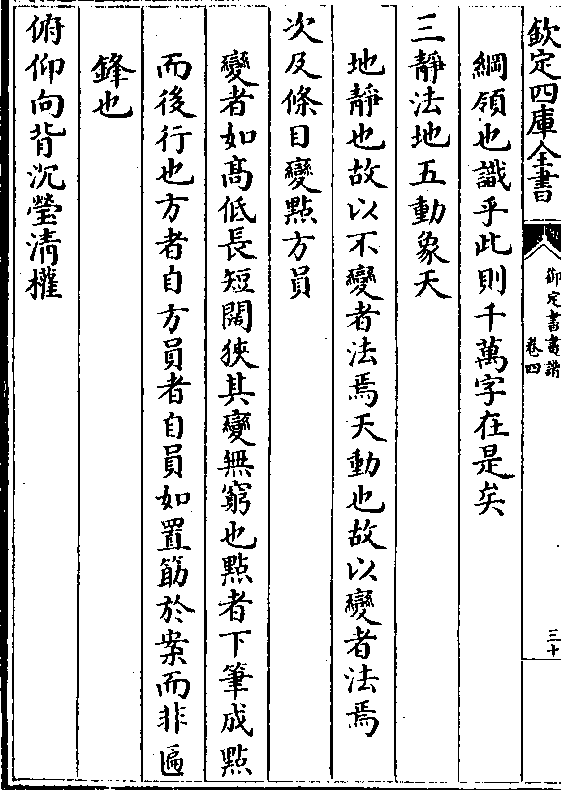 欽定四庫全書
御定書畫譜
卷四
三十
綱領也識乎此則千萬字在是矣
三靜法地五動象天
地靜也故以不變者法焉天動也故以變者法焉
次及條目變點方員
變者如高低長短闊狹其變無窮也點者下筆成點
而後行也方者自方員者自員如置筯於案而非匾
鋒也
俯仰向背沉瑩清權